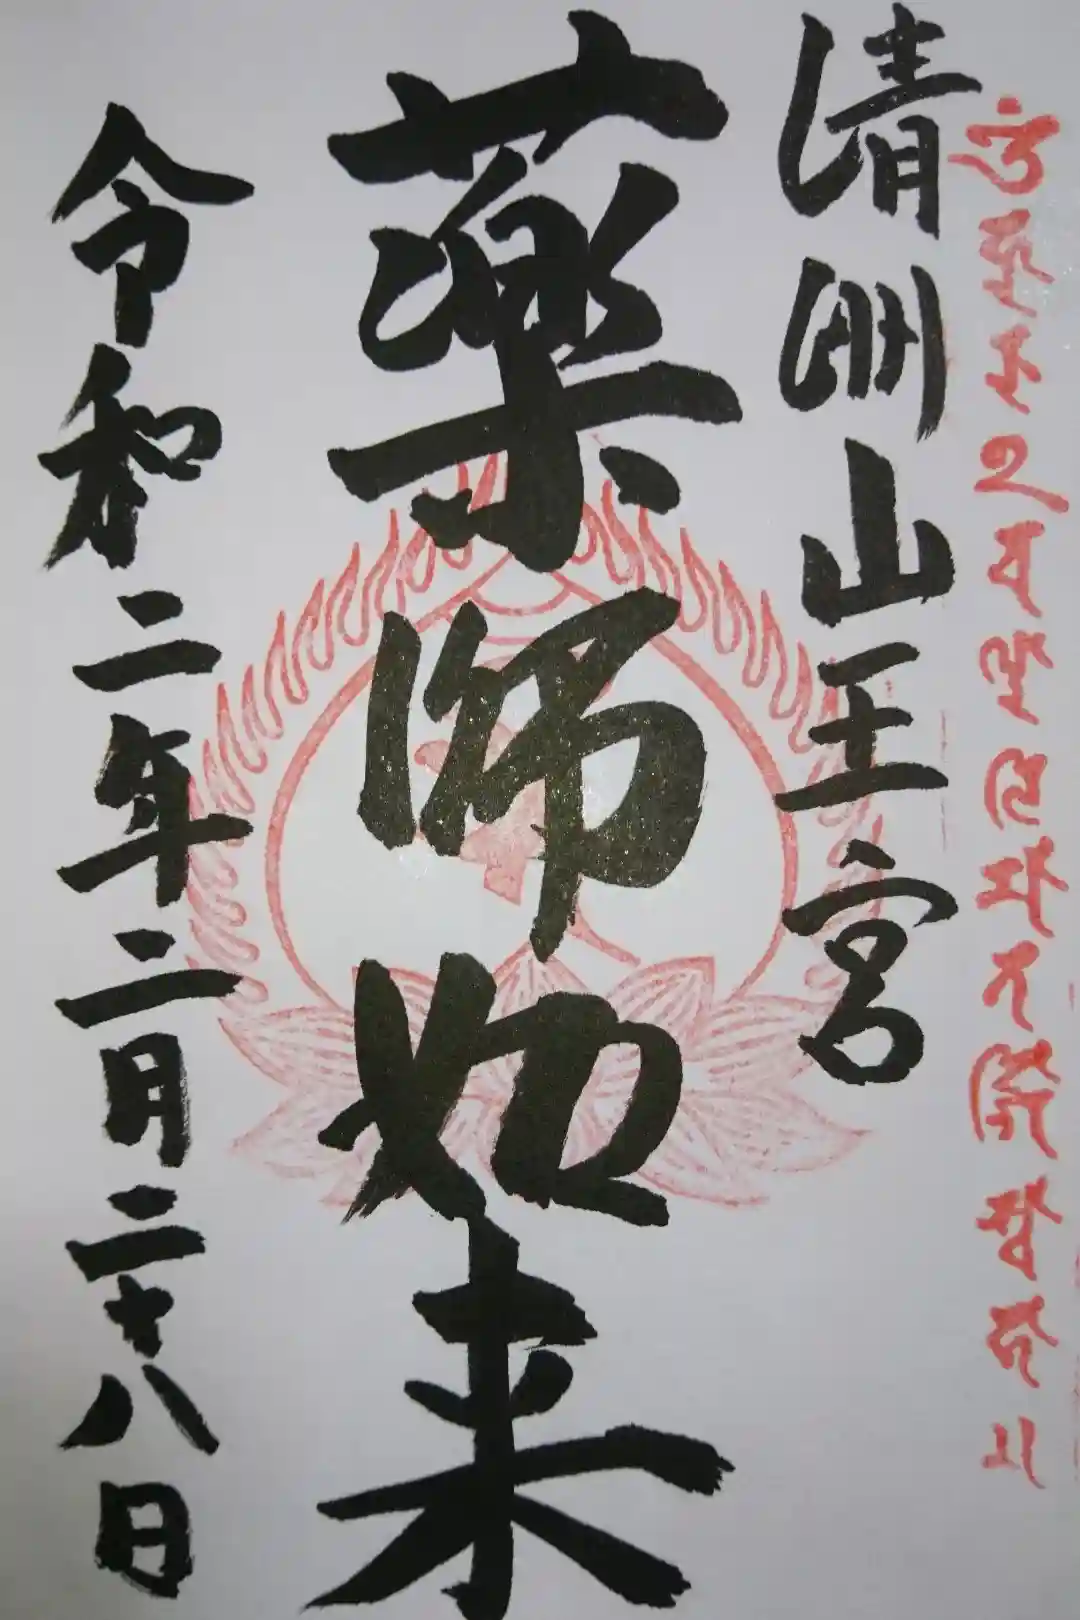 清洲山王宮
薬師如来
令和二年二月二十八日